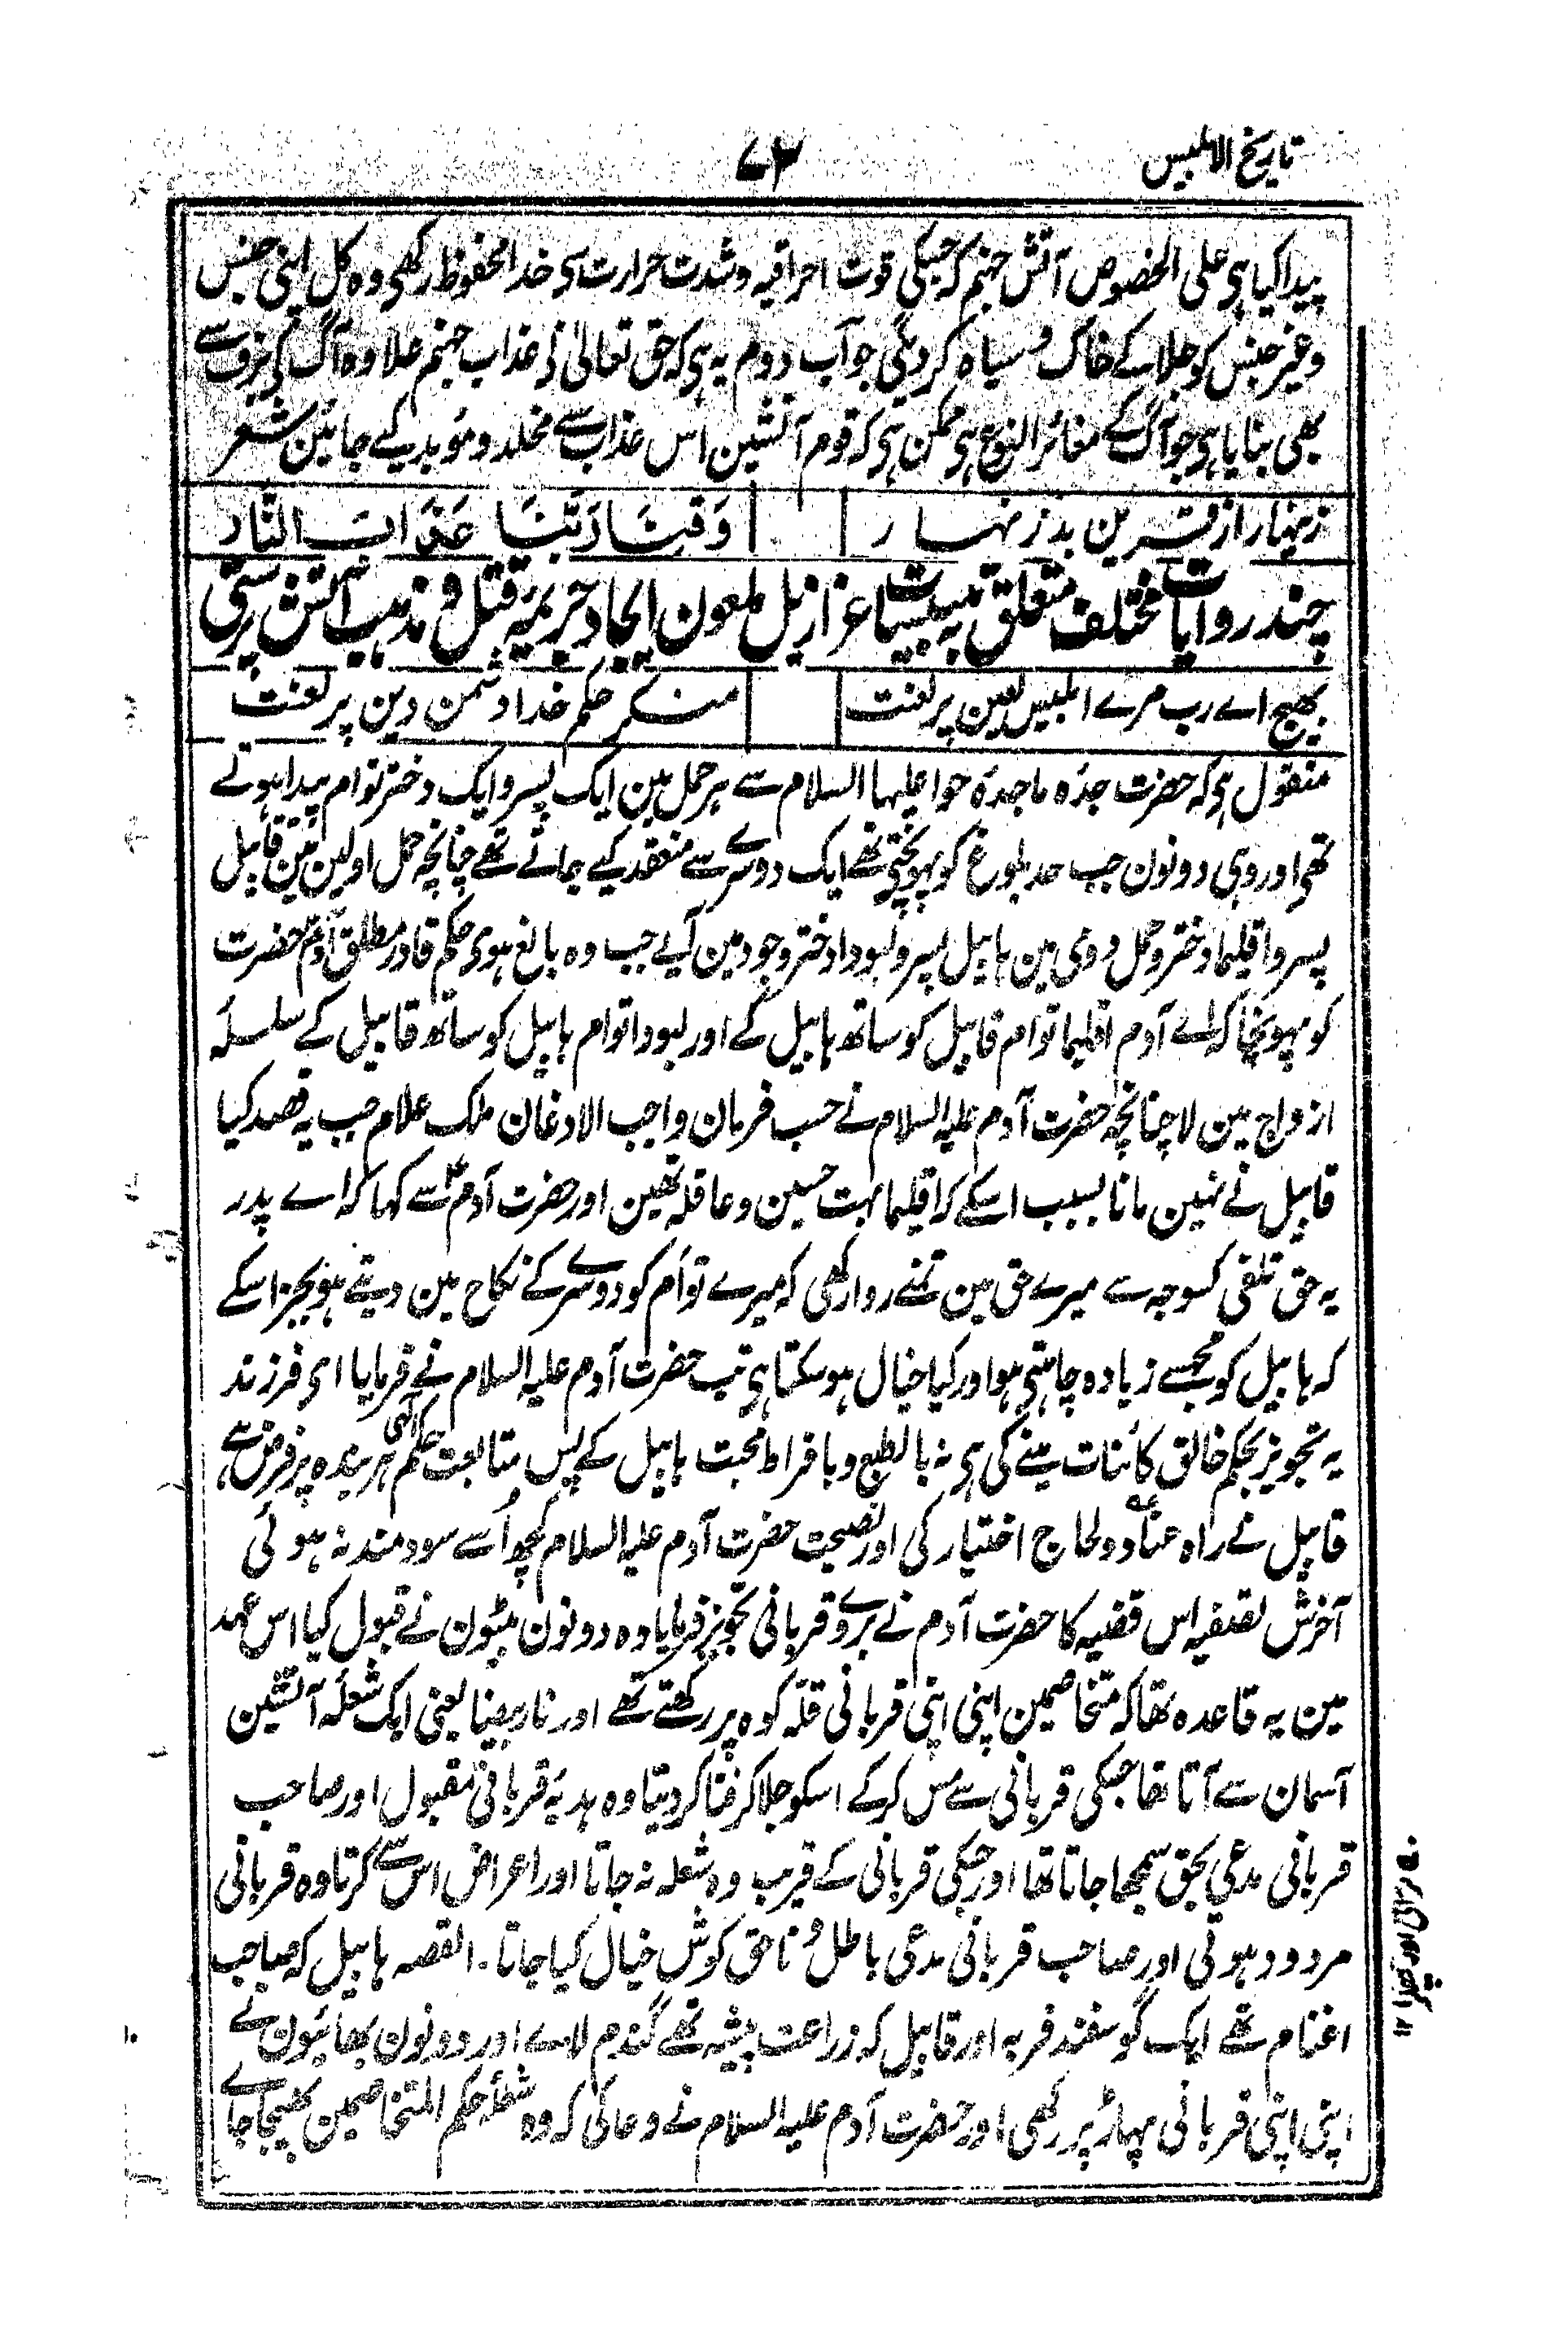 تاریخ الابلیس
۷۲
پیدا کیا ہی علی الخصوص آتش جہنم کہ جسکی قوت احراقیہ وشدت حرارت سی خدا محفوظ رکھی وہ کل اپنی جنس
وغیر جنس کو جلاکے خاک و سیاہ کردیگی جواب دوم یہ ہی کہ حق تعالیٰ نی عذاب جہنم علاوہ آگ کی بزو سے
بھی بنایا ہی جو آگ سے مغائر النوع ہی ممکن ہی کہ قوم آتشین اس عذاب سے مخلد و موبد کیے جائین شعر
زینہار از قرین بد زنہار
وَقِنَا رَبَّنَا عَذَابَ النَّار
چند روایات مختلف متعلق تلبیسات عزازیل ملعون ایجاد جریمۂ قتل و مذہب آتش پرستی
بھیج اے رب مرے ابلیس لعین پر لعنت
منکر حکم خدا دشمن دین پر لعنت
منقول ہی کہ حضرت جدہ ماجدہ حوا علیہا السلام سے ہر حمل مین ایک پسر و ایک دختر توام پیدا ہوتے
تھی اور وہی دونون جب حد بلوغ کو پہونچتی تھے ایک دوسرے سے منعقد کیے جاتے تھے چنانچہ حمل اولین مین قابیل
پسر واقلیما دختر و حمل دوی مین ہابیل پسر و لبودا دختر وجود مین آیے جب وہ بالغ ہوی حکم قادر مطلق آدم حضرت
کو پہونچا کہ اے آدم اقلیما توام قابیل کو ساتھ ہابیل کے اور لبودا توام ہابیل کو ساتھ قابیل کے سلسلۂ
ازواج مین لا چنانچہ حضرت آدم علیہ السلام نے حسب فرمان واجب الاذعان ملک علام جب یہ قصد کیا
قابیل نے نہین مانا بسبب اسکے کہ اقلیما بہت حسین و عاقلہ تھین اور حضرت آدمؑ سے کہا کہ اے پدر
یہ حق تلفی کسوجہ سے میرے حق مین تمنے روا رکھی کہ میرے توام کو دوسرے کے نکاح مین دیتے ہو بجز اسکے
کہ ہابیل کو مجھسے زیادہ چاہتی ہو اور کیا خیال ہوسکتا ہی تب حضرت آدم علیہ السلام نے فرمایا ای فرزند
یہ تجویز بحکم خالق کائنات مینے کی ہی نہ بالطبع و بافراط محبت ہابیل کے پس متابعت حکم الٰہی ہر بندہ پر فرض ہے
قابیل نے راہ عناد و لجاج اختیار کی اور نصیحت حضرت آدم علیہ السلام کچھ اُسے سودمند نہ ہوئی
آخرش تصفیہ اس قضیہ کا حضرت آدم نے بروے قربانی تجویز فرمایا وہ دونون بیٹون نے قبول کیا اس عہد
مین یہ قاعدہ تھا کہ متخاصمین اپنی اپنی قربانی قلّہ کوہ پر رکھتے تھے اور نار بیضا یعنی ایک شعلۂ آتشین
آسمان سے آتا تھا جسکی قربانی سے مس کرکے اسکو جلا کر فنا کردیتا وہ ہدیۂ قربانی مقبول اور صاحب
قربانی مدعی بحق سمجھا جاتا تھا اور جسکی قربانی کے قریب وہ شعلہ نہ جاتا اور اعراض اس سے کرتا وہ قربانی
مردود ہوتی اور صاحب قربانی مدعی باطل و ناحق کوش خیال کیا جاتا۔ القصہ ہابیل کہ صاحب
اغنام تھے ایک گوسفند فربہ اور قابیل کہ زراعت پیشہ تھے گندم لاے اور دونون بھائیون نے
اپنی اپنی قربانی پہاڑ پر رکھی اور حضرت آدم علیہ السلام نے دعا کی کہ وہ شعلۂ حکم المتخاصمین بھیجا جاے